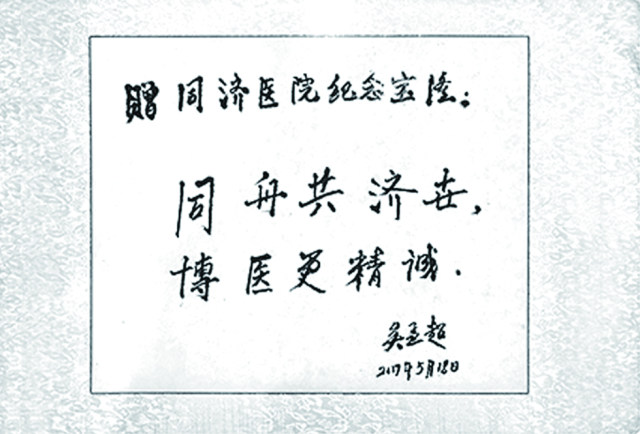 赠同济医院纪念宝隆：
同舟共济世，
博医更精诚．
吴孟超
2017年5月18日